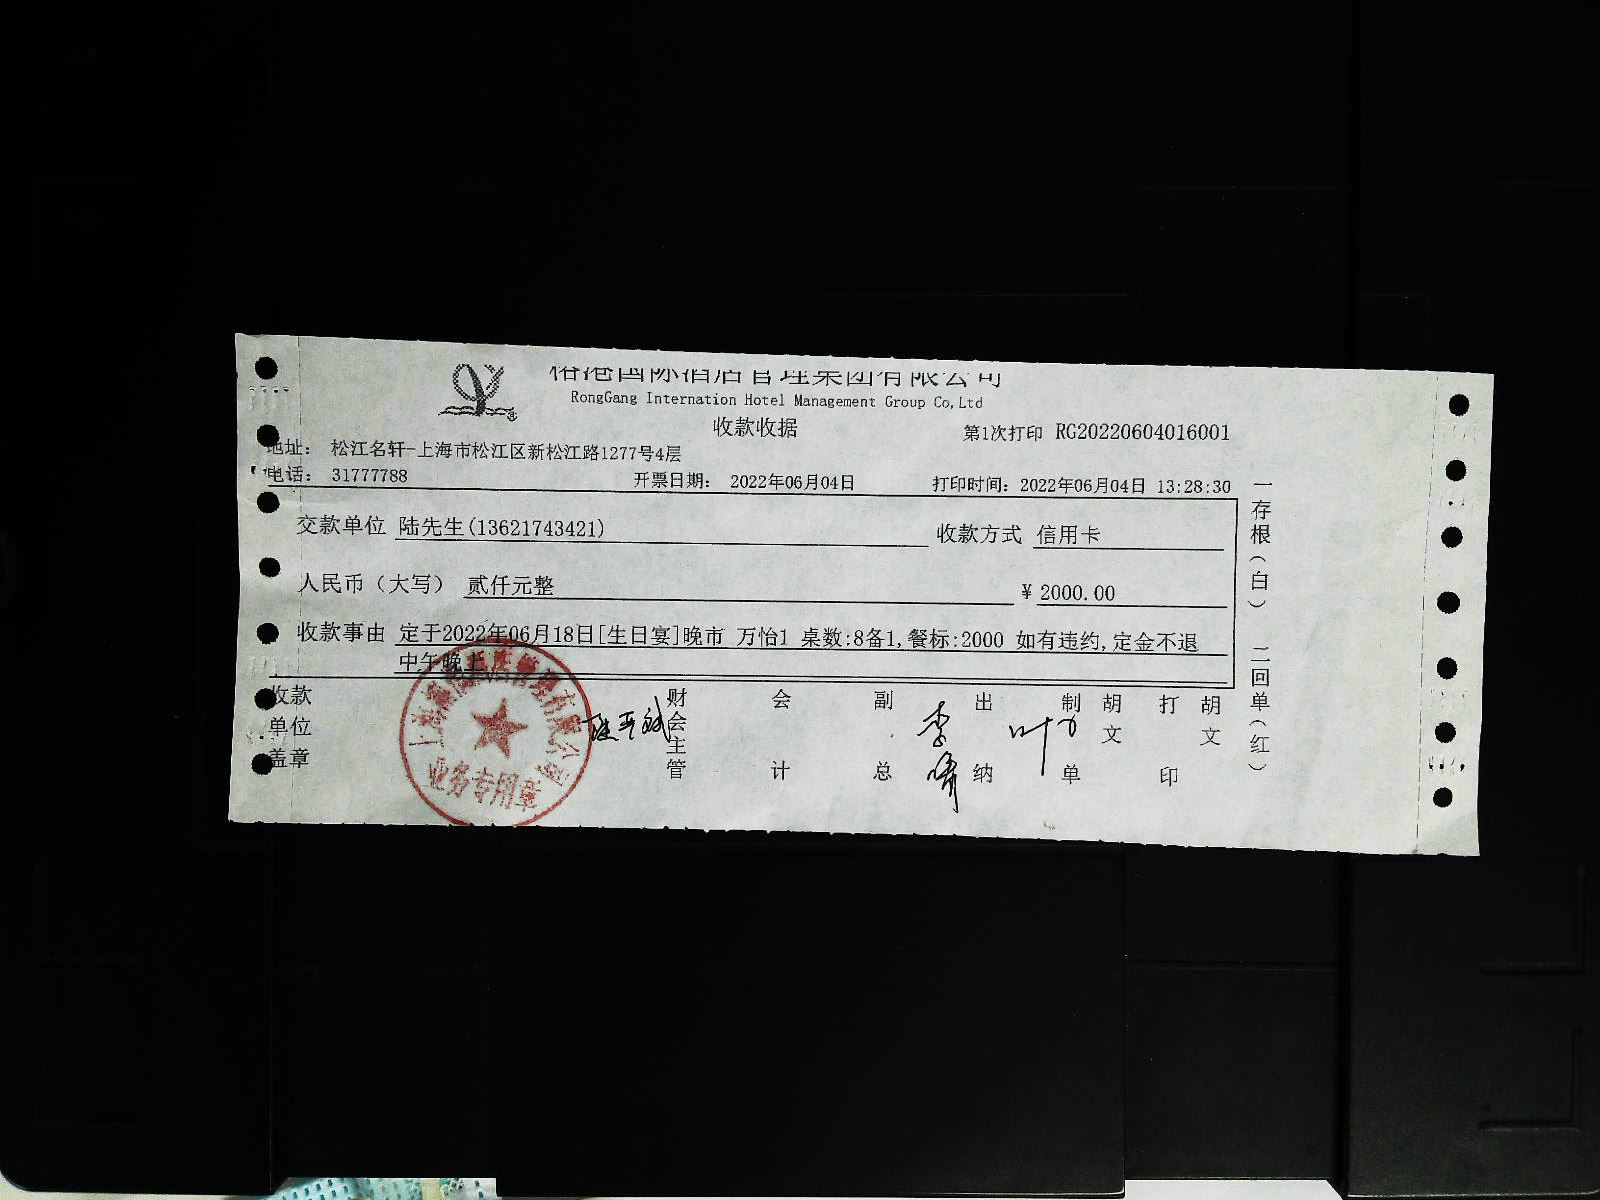 榕港国际酒店管理集团有限公司
RongGang Internation Hotel Management Group Co,Ltd
收款收据
第1次打印 RG20220604016001
地址: 松江名轩-上海市松江区新松江路1277号4层
电话: 31777788 开票日期: 2022年06月04日 打印时间: 2022年06月04日 13:28:30
交款单位 陆先生(13621743421) 收款方式 信用卡
人民币(大写) 贰仟元整 ¥ 2000.00
收款事由 定于2022年06月18日[生日宴]晚市 万怡1 桌数:8备1,餐标:2000 如有违约,定金不退
中午晚上
收款单位盖章 财会主管 会计 副总 出纳 制单 胡文 打印 胡文
李
叶
业务专用章
一存根(白) 二回单(红)